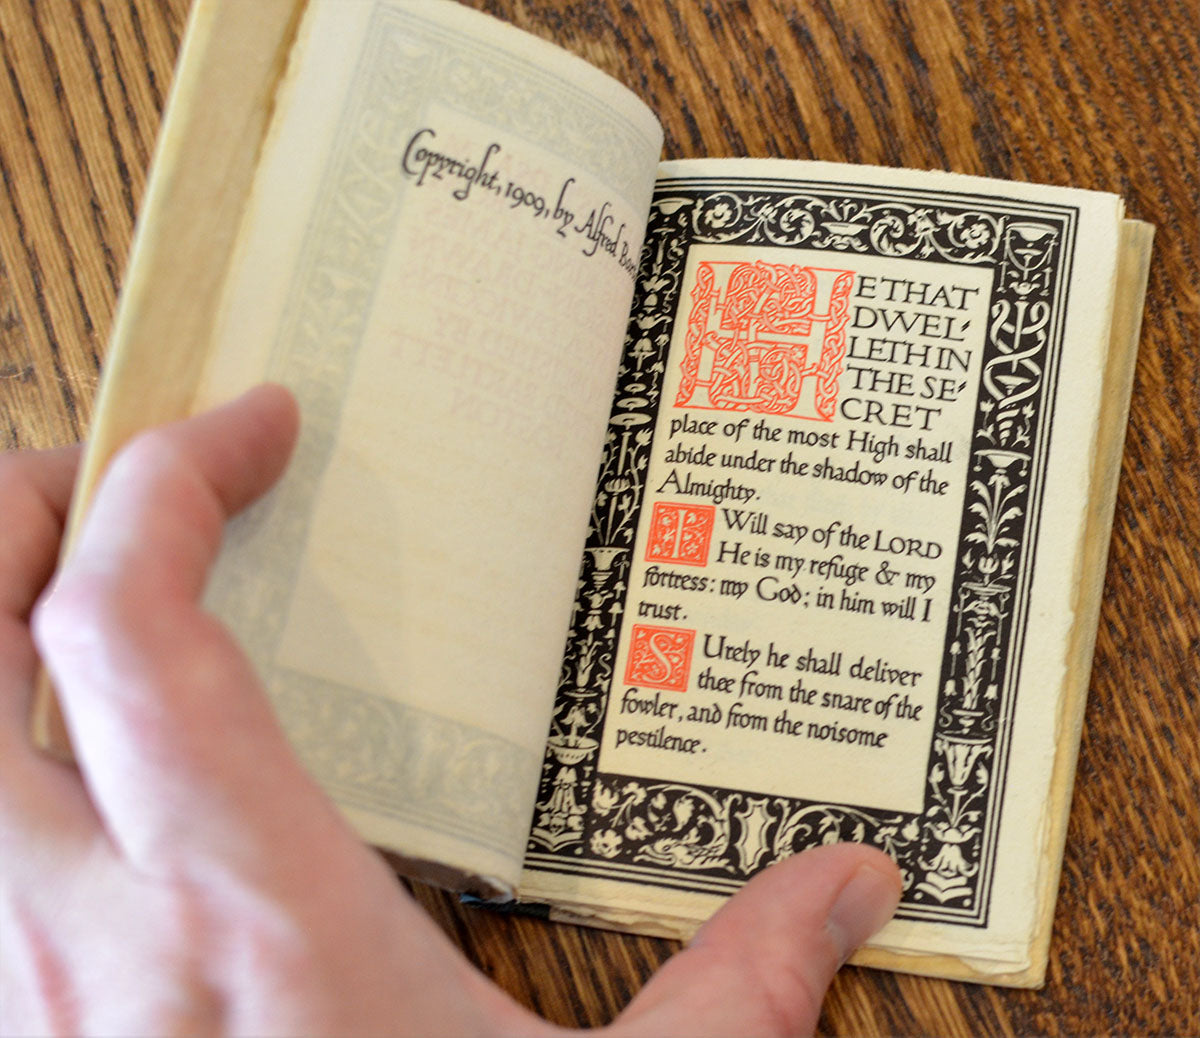 Copyright, 1909, by Alfred
HE THAT
DWEL-
LETH IN
THE SE-
CRET
place of the most High shall
abide under the shadow of the
Almighty.
I Will say of the LORD
He is my refuge & my
fortress: my God; in him will I
trust.
SUrely he shall deliver
thee from the snare of the
fowler, and from the noisome
pestilence.